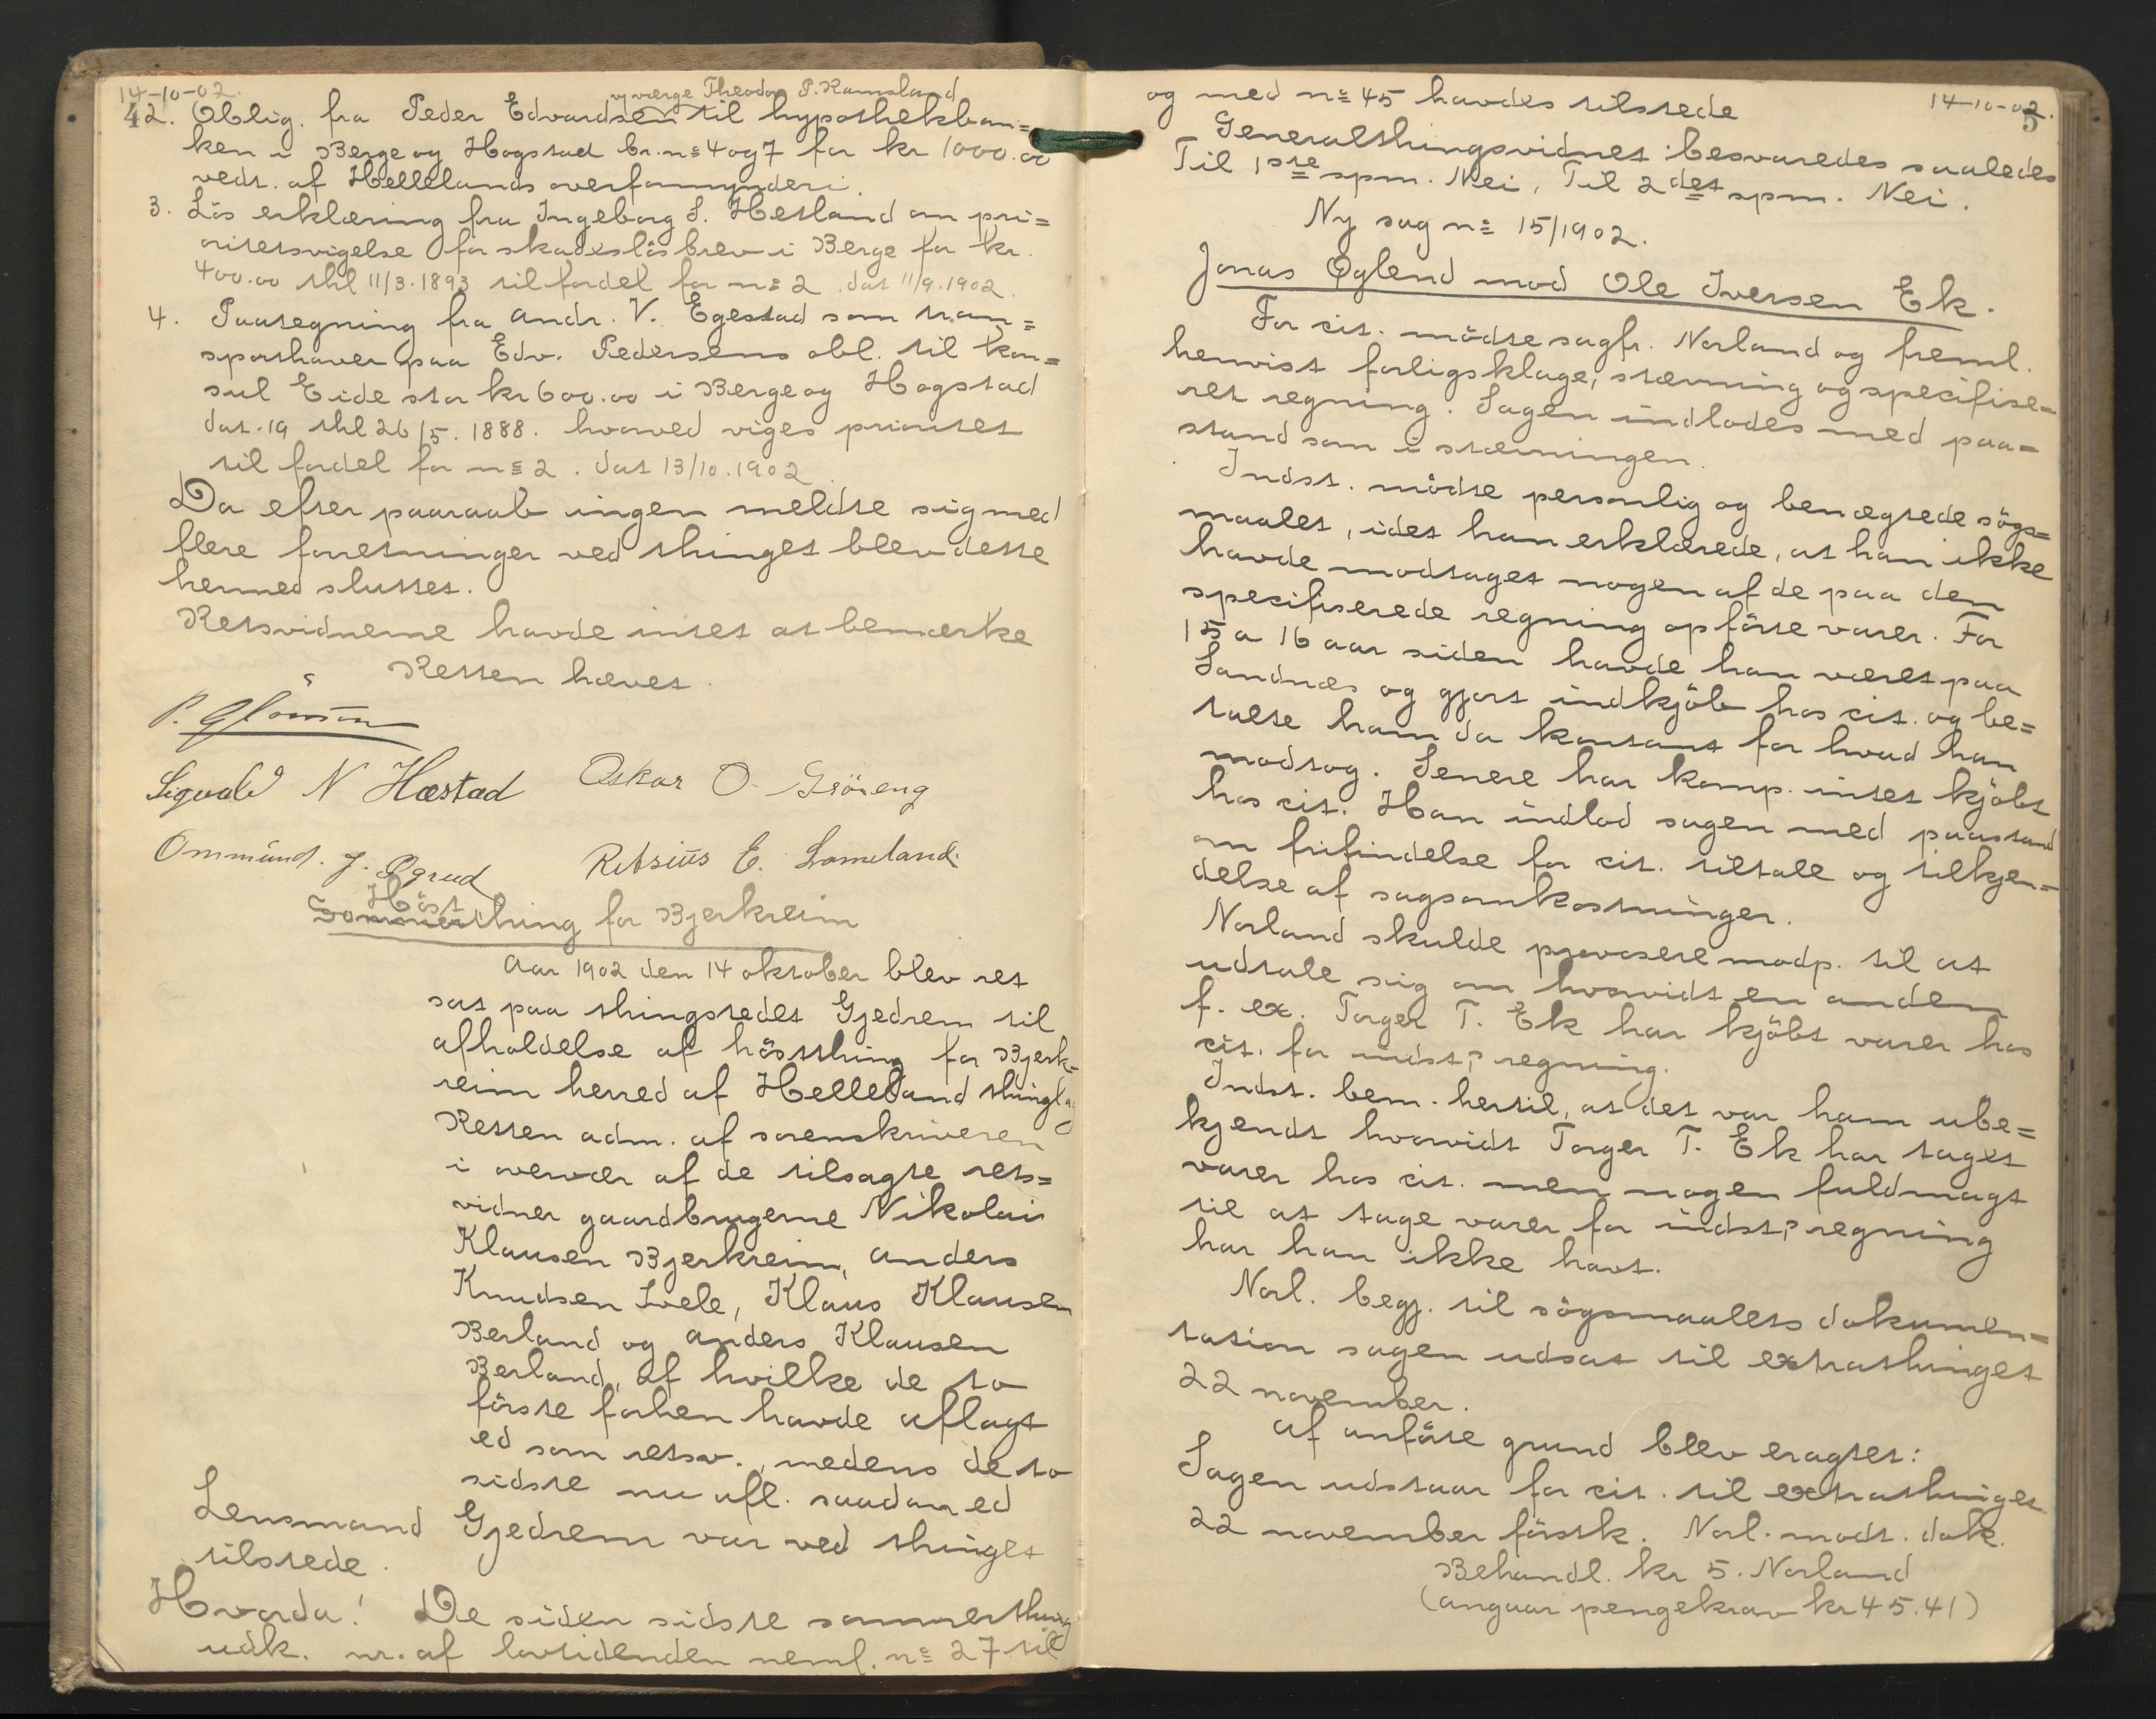 14-10-02.
v/ værge Theodor P. Ramsland
42. Oblig. fra Peder Edvardsen til hypothekban=
ken i Berge og Hogstad br. nº 4 og 7 for kr 1000.00
vedt. af Hellelands overformynderi.
3. Løs erklæring fra Ingeborg S. Hetland om pri=
oritetsvigelse for skadesløsbrev i Berge for kr.
400.00 thl 11/3.1893 til fordel for nº 2. dat 11/9.1902.
4. Paategning fra Andr. V. Egestad som tran=
sporthaver paa Edv. Pedersens obl. til kon=
sul Eide stor kr 600.00 i Berge og Hogstad
dat. 19 thl 26/5. 1888. hvorved viges prioritet
til fordel for nº 2. dat 13/10.1902
Da efter paaraab ingen meldte sig med
flere forretninger ved thinget blev dette
hermed sluttet.
Retsvidnerne havde intet at bemærke
Retten hævet.
Sigvald N Hæstad Oskar O. Grøneng
Ommund. J. Øgrud Retsius E. Lomeland.
Høst
Sommerthing for Bjerkreim
Aar 1902 den 14 oktober blev ret
sat paa thingstedet Gjedrem til
afholdelse af høstthing for Bjerk=
reim herred af Helleland thinglag
Retten adm. af sorenskriveren
i overvær af de tilsagte rets=
vidner gaardbrugerne Nikolai
Klausen Bjerkreim, Anders
Knudsen Ivele, Klaus Klausen
Berland og Anders Klausen
Berland, af hvilke de to
første forhen havde aflagt
ed som retsv., medens de to
sidste nu afl. saadan ed
Lensmand Gjedrem var ved thinget
tilstede.
Hvorda! De siden sidste sommerthing
udk. nr. af lovtidenden neml. nº 27 til
14-10-02.
5
og med nº 45 havdes tilstede
Generalthingsvidnet besvaredes saaledes
Til 1ste spm. Nei, Til 2det spm. Nei.
Ny sag nº 15/1902.
Jonas Øglend mod Ole Iversen Ek.
For cit. mødte sagfr. Norland og freml.
henvist forligsklage, stævning og specifise=
ret regning. Sagen indlodes med paa=
stand som i stævningen.
Indst. mødte personlig og benægtede søgs=
maalet, idet han erklærede, at han ikke
havde modtaget nogen af de paa den
specifiserede regning opførte varer. For
15 a 16 aar siden havde han været paa
Sandnæs og gjort indkjøb hos cit. og be=
talte ham da kontant for hvad han
modtog. Senere har komp. intet kjøbt
hos cit. Han indlod sagen med paastand
om frifindelse for cit. tiltale og tilkjen=
delse af sagsomkostninger.
Norland skulde provosere modp. til at
udtale sig om hvorvidt en anden
f. ex. Torger T. Ek har kjøbt varer hos
cit. for indst.s regning.
Indst. bem. hertil, at det var ham ube=
kjendt hvorvidt Torger T. Ek har taget
varer hos cit. men nogen fuldmagt
til at tage varer for indst.s regning
har han ikke havt.
Norl. begj. til søgsmaalets dokumen=
tation sagen udsat til extrathinget
22 november.
Af anførte grund blev eragtet:
Sagen udstaar for cit. til extrathinget
22 november førstk. Norl. modt. dok.
Behandl. kr 5. Norland
(angaar pengekrav kr 45.41)